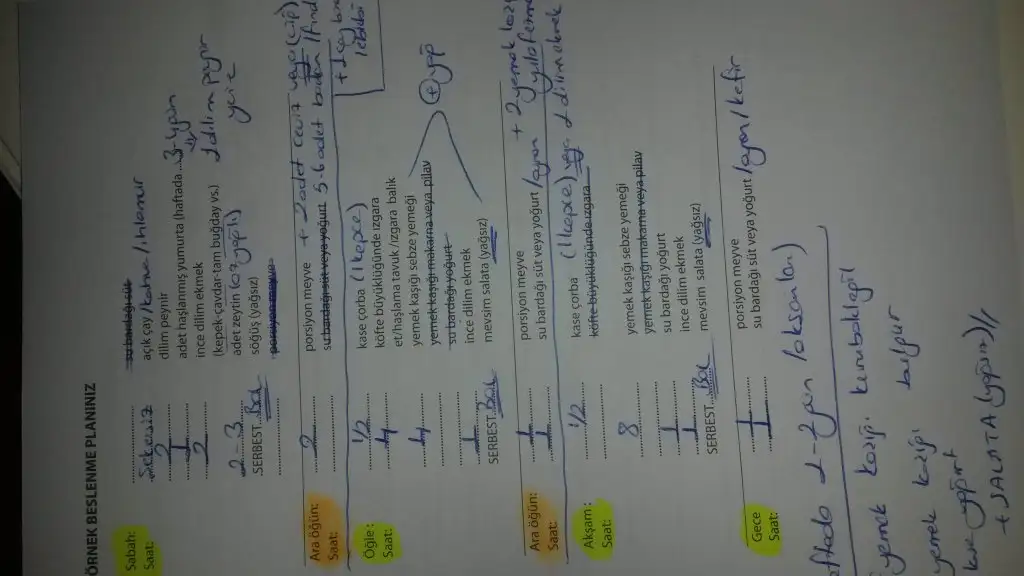 ÖRNEK BESLENME PLANINIZ
Sabah:
Saat:
su bardağı süt
Şekersiz açık çay / kahve / ıhlamur
2 dilim peynir
1 adet haşlanmış yumurta (haftada 3-4 gün)
2 ince dilim ekmek
(kepek-çavdar-tam buğday vs.) 1 dilim peynir
2-3 adet zeytin (az yağlı) yerine
SERBEST Bol söğüş (yağsız)
porsiyon meyve
Ara öğün:
Saat:
2 porsiyon meyve + 2 adet ceviz veya (çiğ)
su bardağı süt veya yoğurt 5-6 adet badem / fınd
Öğle:
Saat:
1/2 kase çorba (1 kepçe)
4 köfte büyüklüğünde ızgara
et/haşlama tavuk/ızgara balık
4 yemek kaşığı sebze yemeği
yemek kaşığı makarna veya pilav
su bardağı yoğurt
1 ince dilim ekmek
SERBEST Bol mevsim salata (yağsız)
Ara öğün:
Saat:
1 porsiyon meyve
1 su bardağı süt veya yoğurt / ayran + 2 yemek
Akşam:
Saat:
1/2 kase çorba (1 kepçe) veya 1 dilim ekmek
köfte büyüklüğünde ızgara
8 yemek kaşığı sebze yemeği
yemek kaşığı makarna veya pilav
1 su bardağı yoğurt
1 ince dilim ekmek
SERBEST Bol mevsim salata (yağsız)
Gece
Saat:
1 porsiyon meyve
1 su bardağı süt veya yoğurt / ayran / kefir
1-2 gün (akşamları)
yemek kaşığı kurubaklagil
yemek kaşığı bulgur
yoğurt
+ SALATA (yağsız)